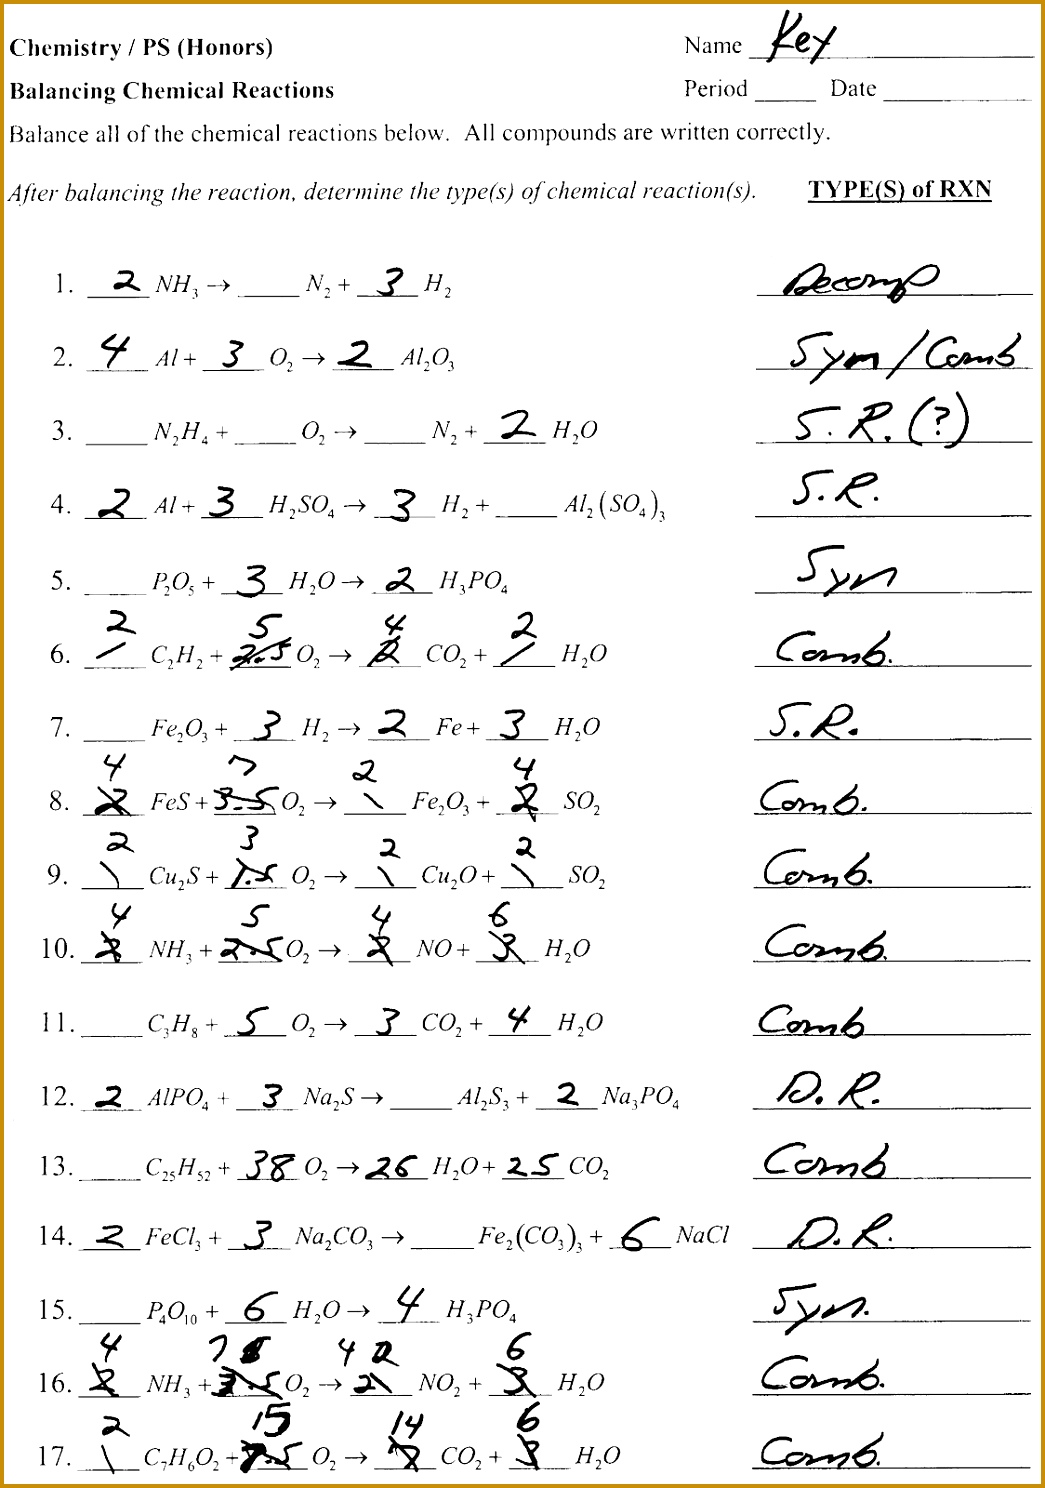 Chemistry / PS (Honors) Name Key
Balancing Chemical Reactions Period ____ Date ____
Balance all of the chemical reactions below. All compounds are written correctly.
After balancing the reaction, determine the type(s) of chemical reaction(s). TYPE(S) of RXN
1. 2 NH₃ → ____ N₂ + 3 H₂ Decomp
2. 4 Al + 3 O₂ → 2 Al₂O₃ Syn/Comb
3. ____ N₂H₄ + ____ O₂ → ____ N₂ + 2 H₂O S.R.(?)
4. 2 Al + 3 H₂SO₄ → 3 H₂ + ____ Al₂(SO₄)₃ S.R.
5. ____ P₂O₅ + 3 H₂O → 2 H₃PO₄ Syn
6. 2 C₂H₂ + 5 O₂ → 4 CO₂ + 2 H₂O Comb.
7. ____ Fe₂O₃ + 3 H₂ → 2 Fe + 3 H₂O S.R.
8. 4 FeS + 7 O₂ → 2 Fe₂O₃ + 4 SO₂ Comb.
9. 2 Cu₂S + 3 O₂ → 2 Cu₂O + 2 SO₂ Comb.
10. 4 NH₃ + 5 O₂ → 4 NO + 6 H₂O Comb.
11. ____ C₃H₈ + 5 O₂ → 3 CO₂ + 4 H₂O Comb
12. 2 AlPO₄ + 3 Na₂S → ____ Al₂S₃ + 2 Na₃PO₄ D.R.
13. ____ C₂₅H₅₂ + 38 O₂ → 26 H₂O + 25 CO₂ Comb
14. 2 FeCl₃ + 3 Na₂CO₃ → ____ Fe₂(CO₃)₃ + 6 NaCl D.R.
15. ____ P₄O₁₀ + 6 H₂O → 4 H₃PO₄ Syn.
16. 4 NH₃ + 7 O₂ → 4 NO₂ + 6 H₂O Comb.
17. 2 C₇H₆O₂ + 15 O₂ → 14 CO₂ + 6 H₂O Comb.